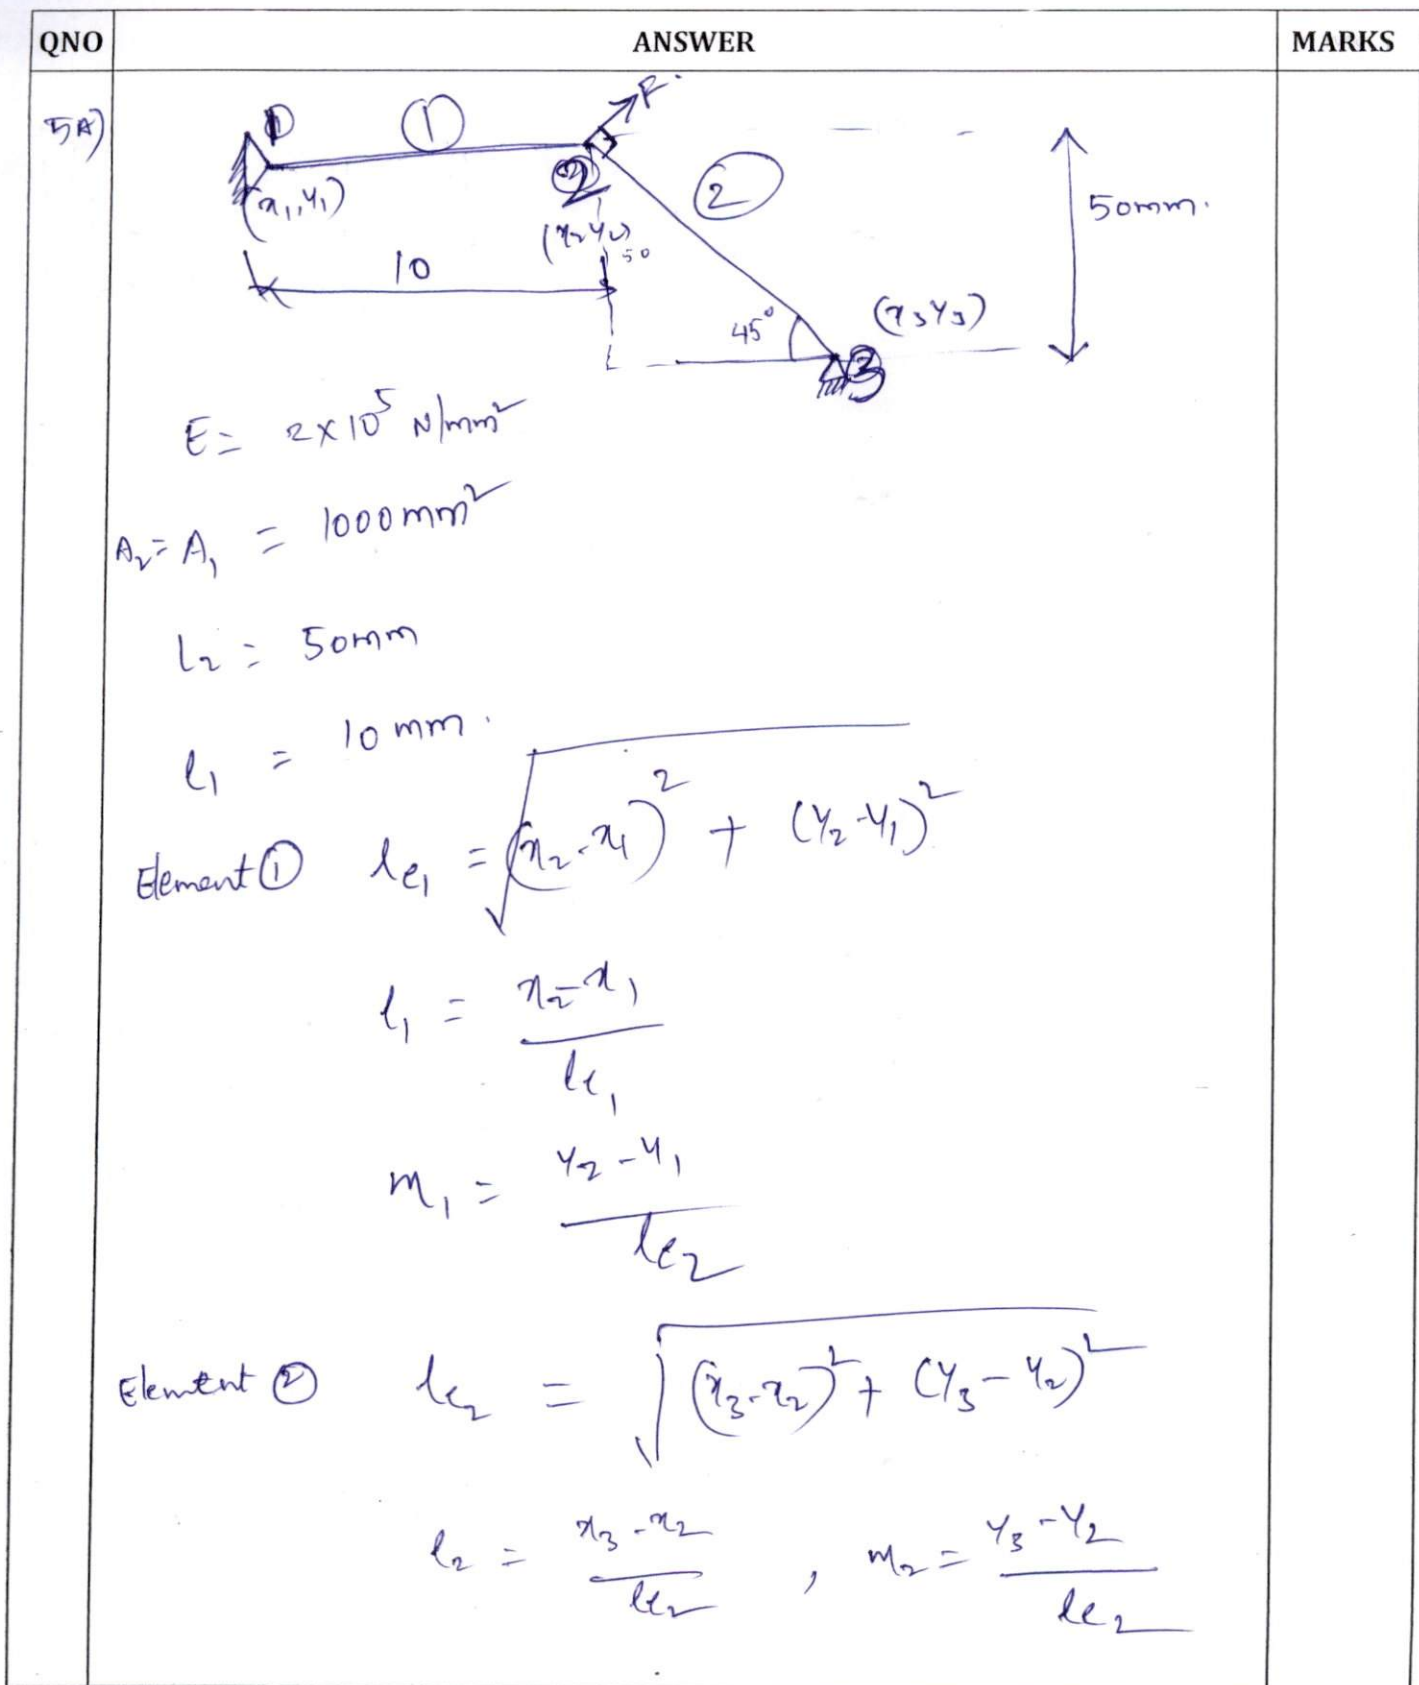 QNO ANSWER MARKS
5A)
1 ① F
② ②
(x₁,y₁) 50mm.
(x₂y₂)
10 50
45° (x₃y₃)
③
E= 2×10⁵ N/mm²
A₂= A₁ = 1000mm²
l₂ = 50mm
l₁ = 10 mm.
Element ① le₁ = √(x₂-x₁)² + (y₂-y₁)²
l₁ = x₂-x₁ / le₁
m₁ = y₂-y₁ / le₂
Element ② le₂ = √(x₃-x₂)² + (y₃-y₂)²
l₂ = x₃-x₂ / le₂ , m₂ = y₃-y₂ / le₂